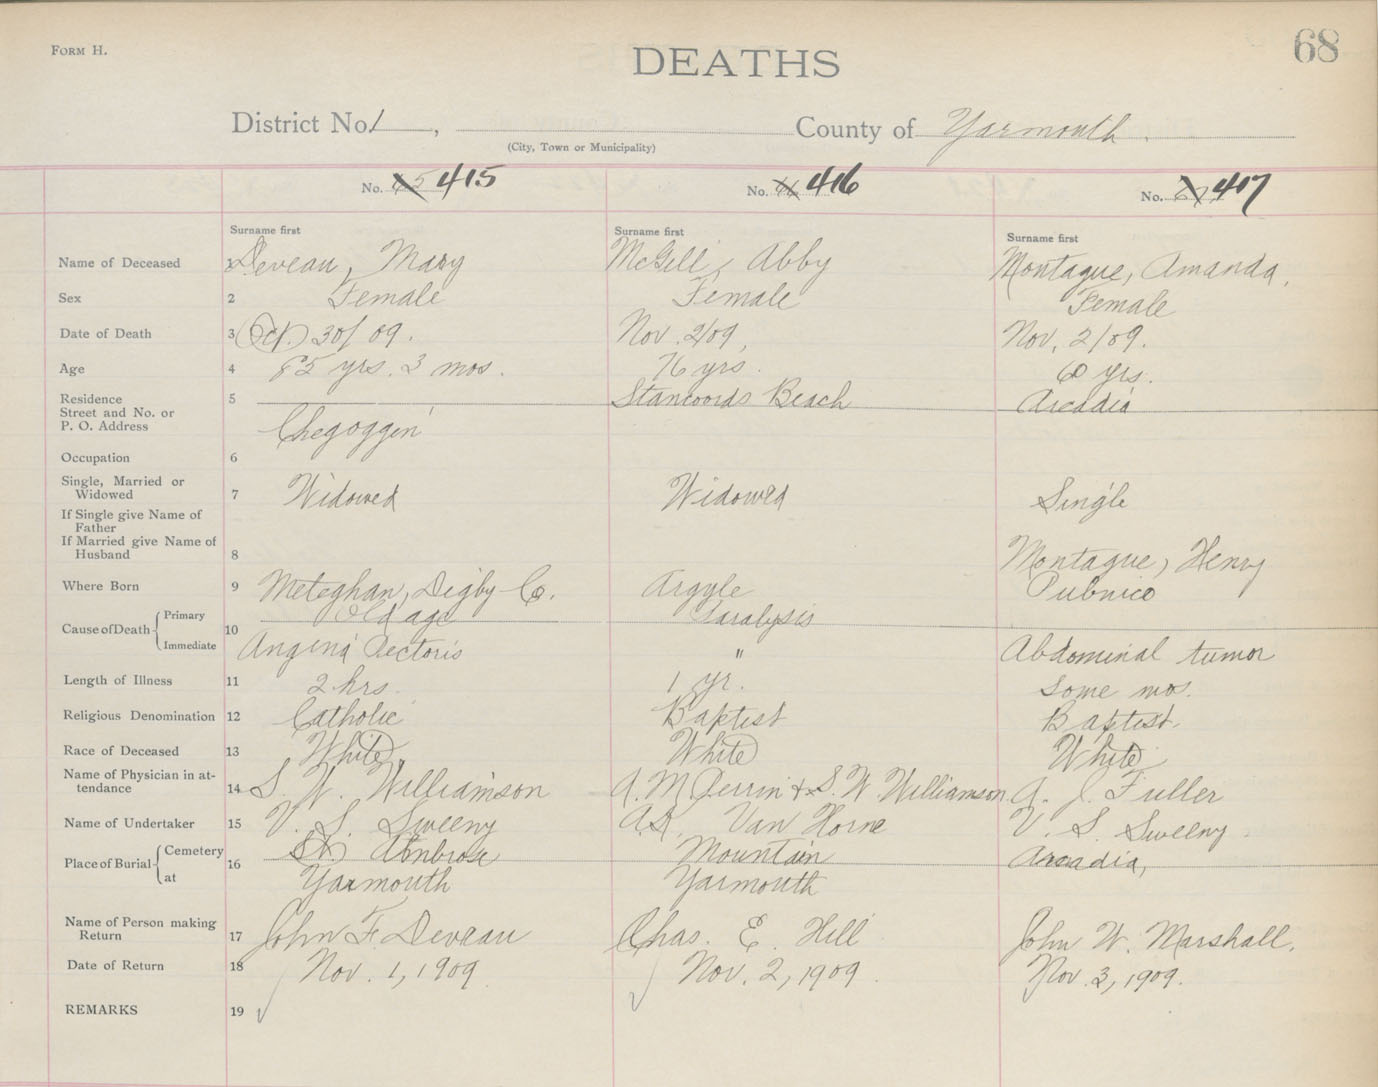 FORM H.
DEATHS
68
District No. 1 , County of Yarmouth.
(City, Town or Municipality)
No. 415 No. 416 No. 417
Surname first Surname first Surname first
Name of Deceased 1 Deveau, Mary McGill, Abby Montague, Amanda,
Sex 2 Female Female Female
Date of Death 3 Oct. 30/09. Nov. 2/09, Nov. 2/09.
Age 4 85 yrs. 3 mos. 76 yrs. 60 yrs.
Residence 5 Beach Arcadia
Street and No. or
P. O. Address Chegoggin
Occupation 6
Single, Married or
Widowed 7 Widowed Widowed Single
If Single give Name of
Father
If Married give Name of
Husband 8 Montague, Henry
Where Born 9 Meteghan, Digby Co. Argyle Pubnico
Cause of Death Primary 10 Old age Paralysis
Immediate Angina Pectoris " Abdominal tumor
Length of Illness 11 2 hrs. 1 yr. Some mos.
Religious Denomination 12 Catholic Baptist Baptist.
Race of Deceased 13 White White White
Name of Physician in at-
tendance 14 S. W. Williamson A. M Perrin & S. W. Williamson A. J. Fuller
Name of Undertaker 15 V. S. Sweeny Van Horne V. S. Sweeny
Place of Burial Cemetery 16 St. Ambrose Mountain Arcadia,
at Yarmouth Yarmouth
Name of Person making
Return 17 John F. Deveau Chas. E. Hill John W. Marshall.
Date of Return 18 Nov. 1, 1909 Nov. 2, 1909 Nov. 3, 1909.
REMARKS 19